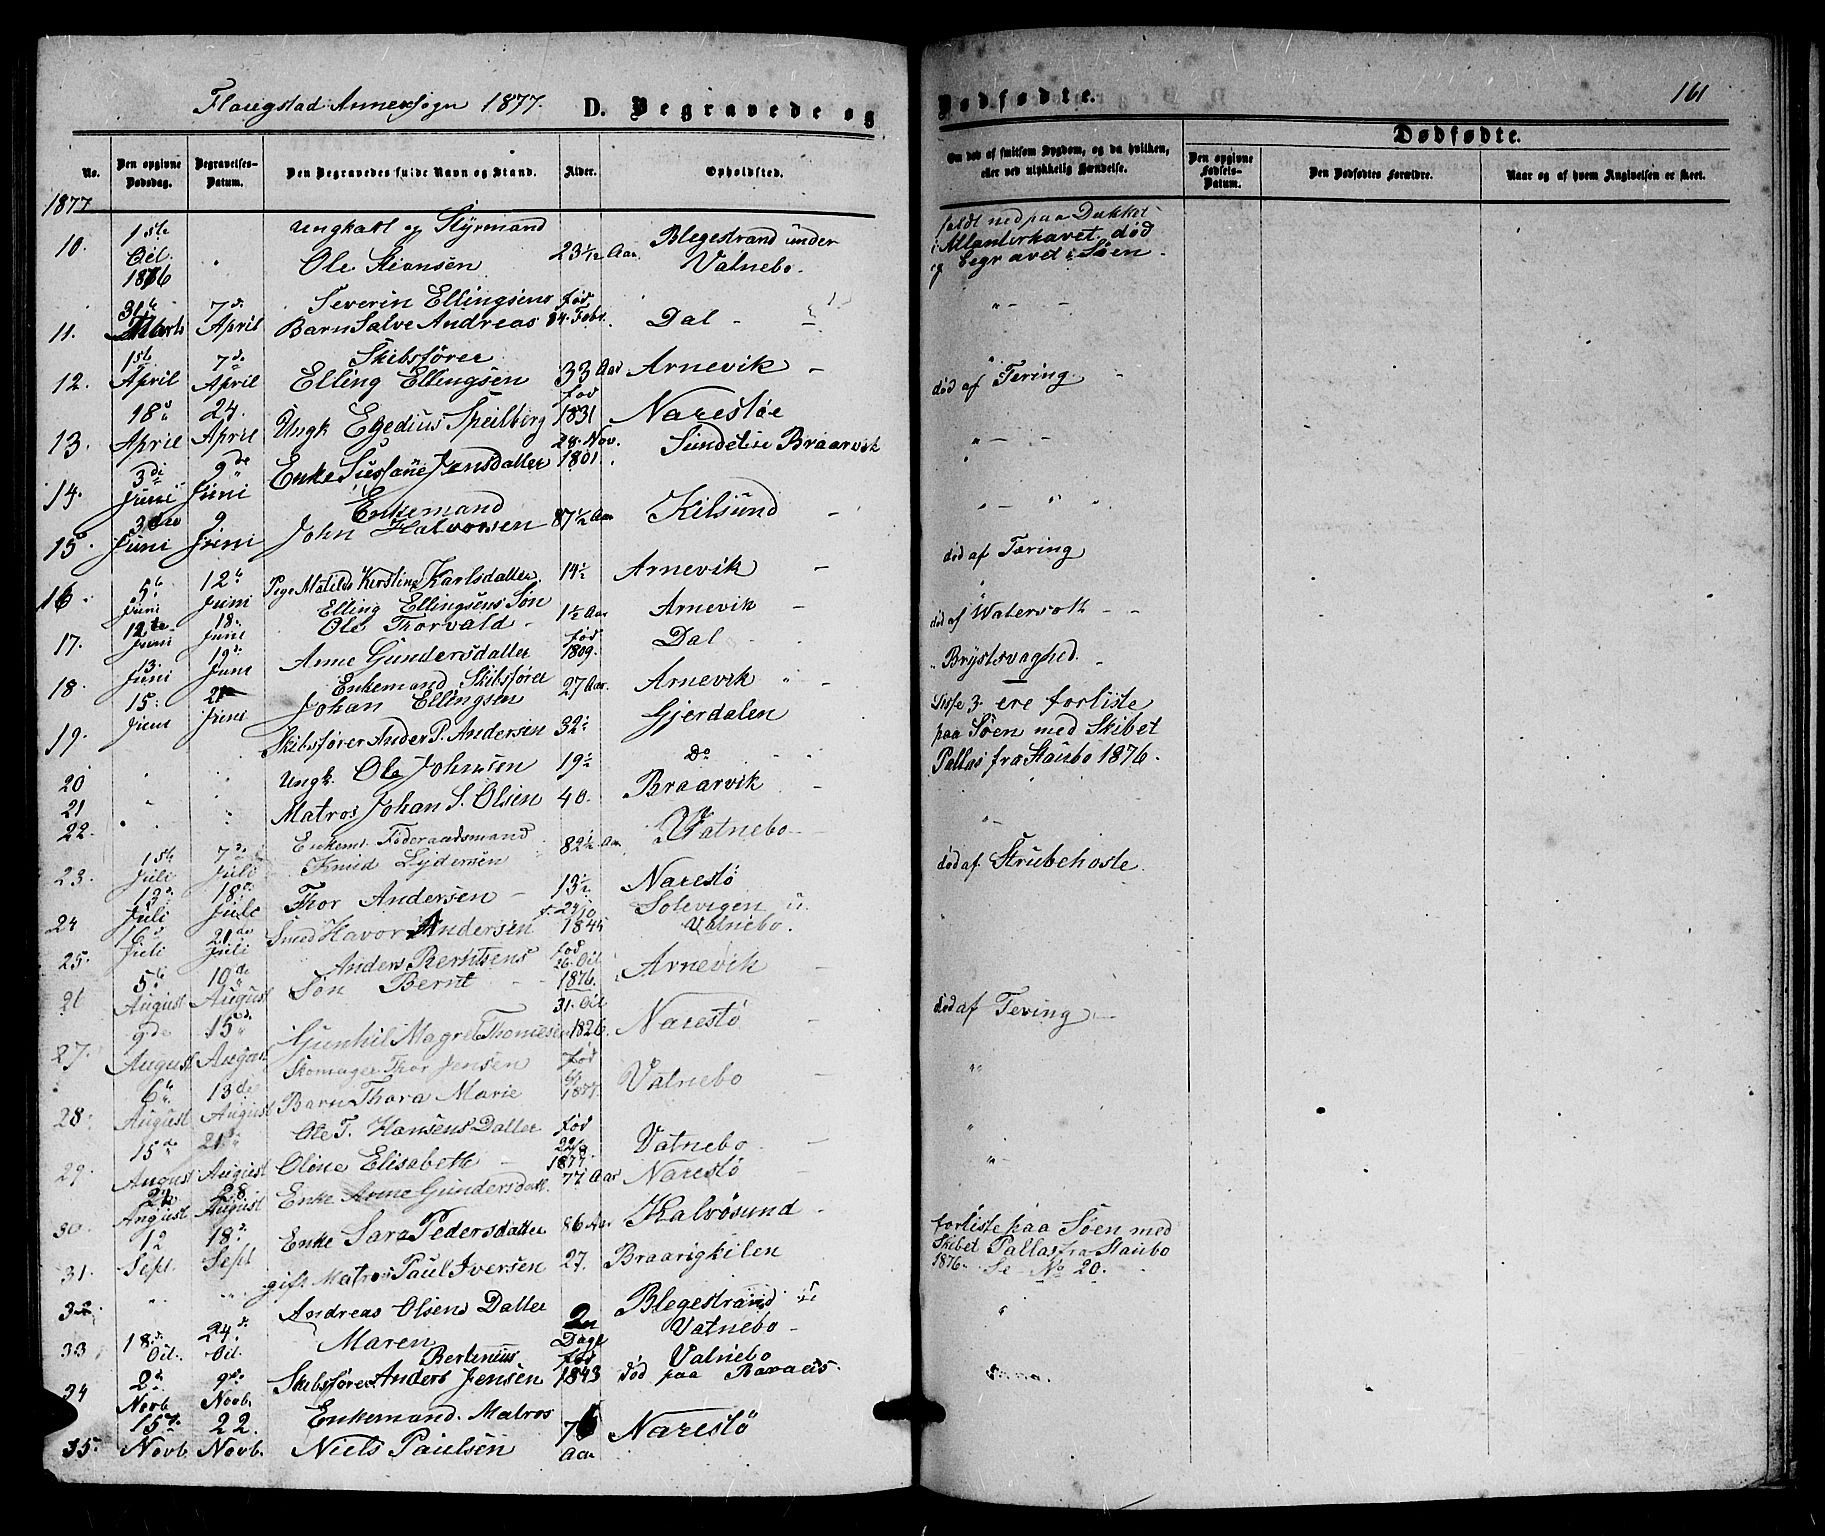 Flaugstad Annexsogn 1877. D. Begravede og
No.
Den opgivne Dødsdag.
Begravelses-Datum.
Den Begravedes fulde Navn og Stand.
Alder.
Opholdssted.
1877
10. 1ste Oct. 1876 Ungkarl og Styrmand Ole Stiansen 23 1/12 Aar Blegestrand under Vatnebo.
11. 31te Marts 7de April Severin Ellingsens Barn Salve Andreas fød 24. Febr. Dal -
12. 1ste April 7de April Skibsfører Elling Ellingsen 33 Aar Arnevik -
13. 18de April 24. April Ungk Egedius Speilberg fød 1831 Narestøe
14. 3die Juni 9de Juni Enke Sussane Jensdatter 28. Nov. 1801. Sundetise Braarvik
15. 3die Juni 9. Juni Enkemand John Halvorsen 87 1/2 Aar Kilsund -
16. 5te Juni 12te Juni Pige Matilde Kirstine Karlsdatter 14 1/2 Arnevik -
17. 12te Juni 18. Juni Elling Ellingsens Søn Ole Thorvald - 1 1/2 Aar Arnevik -
18. 13. Juni 19de Juni Anne Gundersdatter fød 1809. Dal -
19. 15. Juni 21 Juni Enkemand Skibsfører Johan Ellingsen 27 Aar. Arnevik " -
20 Skibsfører Ander P. Andersen 32 1/2 Gjerdalen
21 Ungk. Ole Johnsen 19 1/2 Do
22. Matros Johan S. Olsen 40. Braarvik -
23. 1ste Juli 7de Juli Enkem. Føderaadsmand Knud Lydersen 82 1/2 Aar Vatnebo -
24 13de Juli 18de Juli Thor Andersen - 13 1/2 Narestø
25. 16de Juli 21de Juli Smed Havor Andersen f. 24/10 1845 Solevigen u. Vatnebo.
26 5te August 10de August Anders Berntsens Søn Bernt - - fød 26. Oct 1876. Arnevik -
27. 9de August 15de August Gunhil Magret Thomesen 31. Oct 1826. Narestø -
28. 6te August 13de August Skomager Thor Jensen Barn Thora Marie fød 1877. Vatnebo -
29. 15de August 21de August Ole T. Hansens Datter Oline Elisabeth - fød 22/8 1877. Vatnebo. -
30. August 28 August Enke Anne Gundersdatt. 77 Aar Narestø -
31. 12 Sept. 18de Sept Enke Sara Pedersdatter 86 Aar Kalvøsund -
32. gift Matros Paul Iversen 27. Braarigkilen
33. 18de Oct. 24de Oct. Andreas Olsens Datter Maren 2 Dage Blegestrand u Vatnebo -
34 2de Novb 9de Novb. Skibsfører Anders Bertenius Jensen fød 1843 Vatnebo død paa
35. 15de Novb. 22. Novb. Enkemand. Matros Niels Paulsen 76 Aar Narestø
Dødfødte. 161
Om død af smitsom Sygdom, og da hvilken, eller ved ulykkelig Hændelse.
Dødfødte.
Den opgivne Fødsels-Datum.
Den Dødfødtes Forældre.
Naar og af hvem Angivelsen er skeet.
faldt ned paa Dækket
i Atlanterhavet, død
og begravet i Søen -
" - -
død af Tering. -
" - -
" -
død af Tæring
død af Watersott - -
" Brystsvaghed. -
Disse 3 ere forliste
paa Søen med Skibet
Pallas fra Staubo 1876 -
" -
død af. Strubehoste.
død af Tering -
"
" -
forliste paa Søen med
Skibet Pallas fra Staubo
1876 - Se No 20.